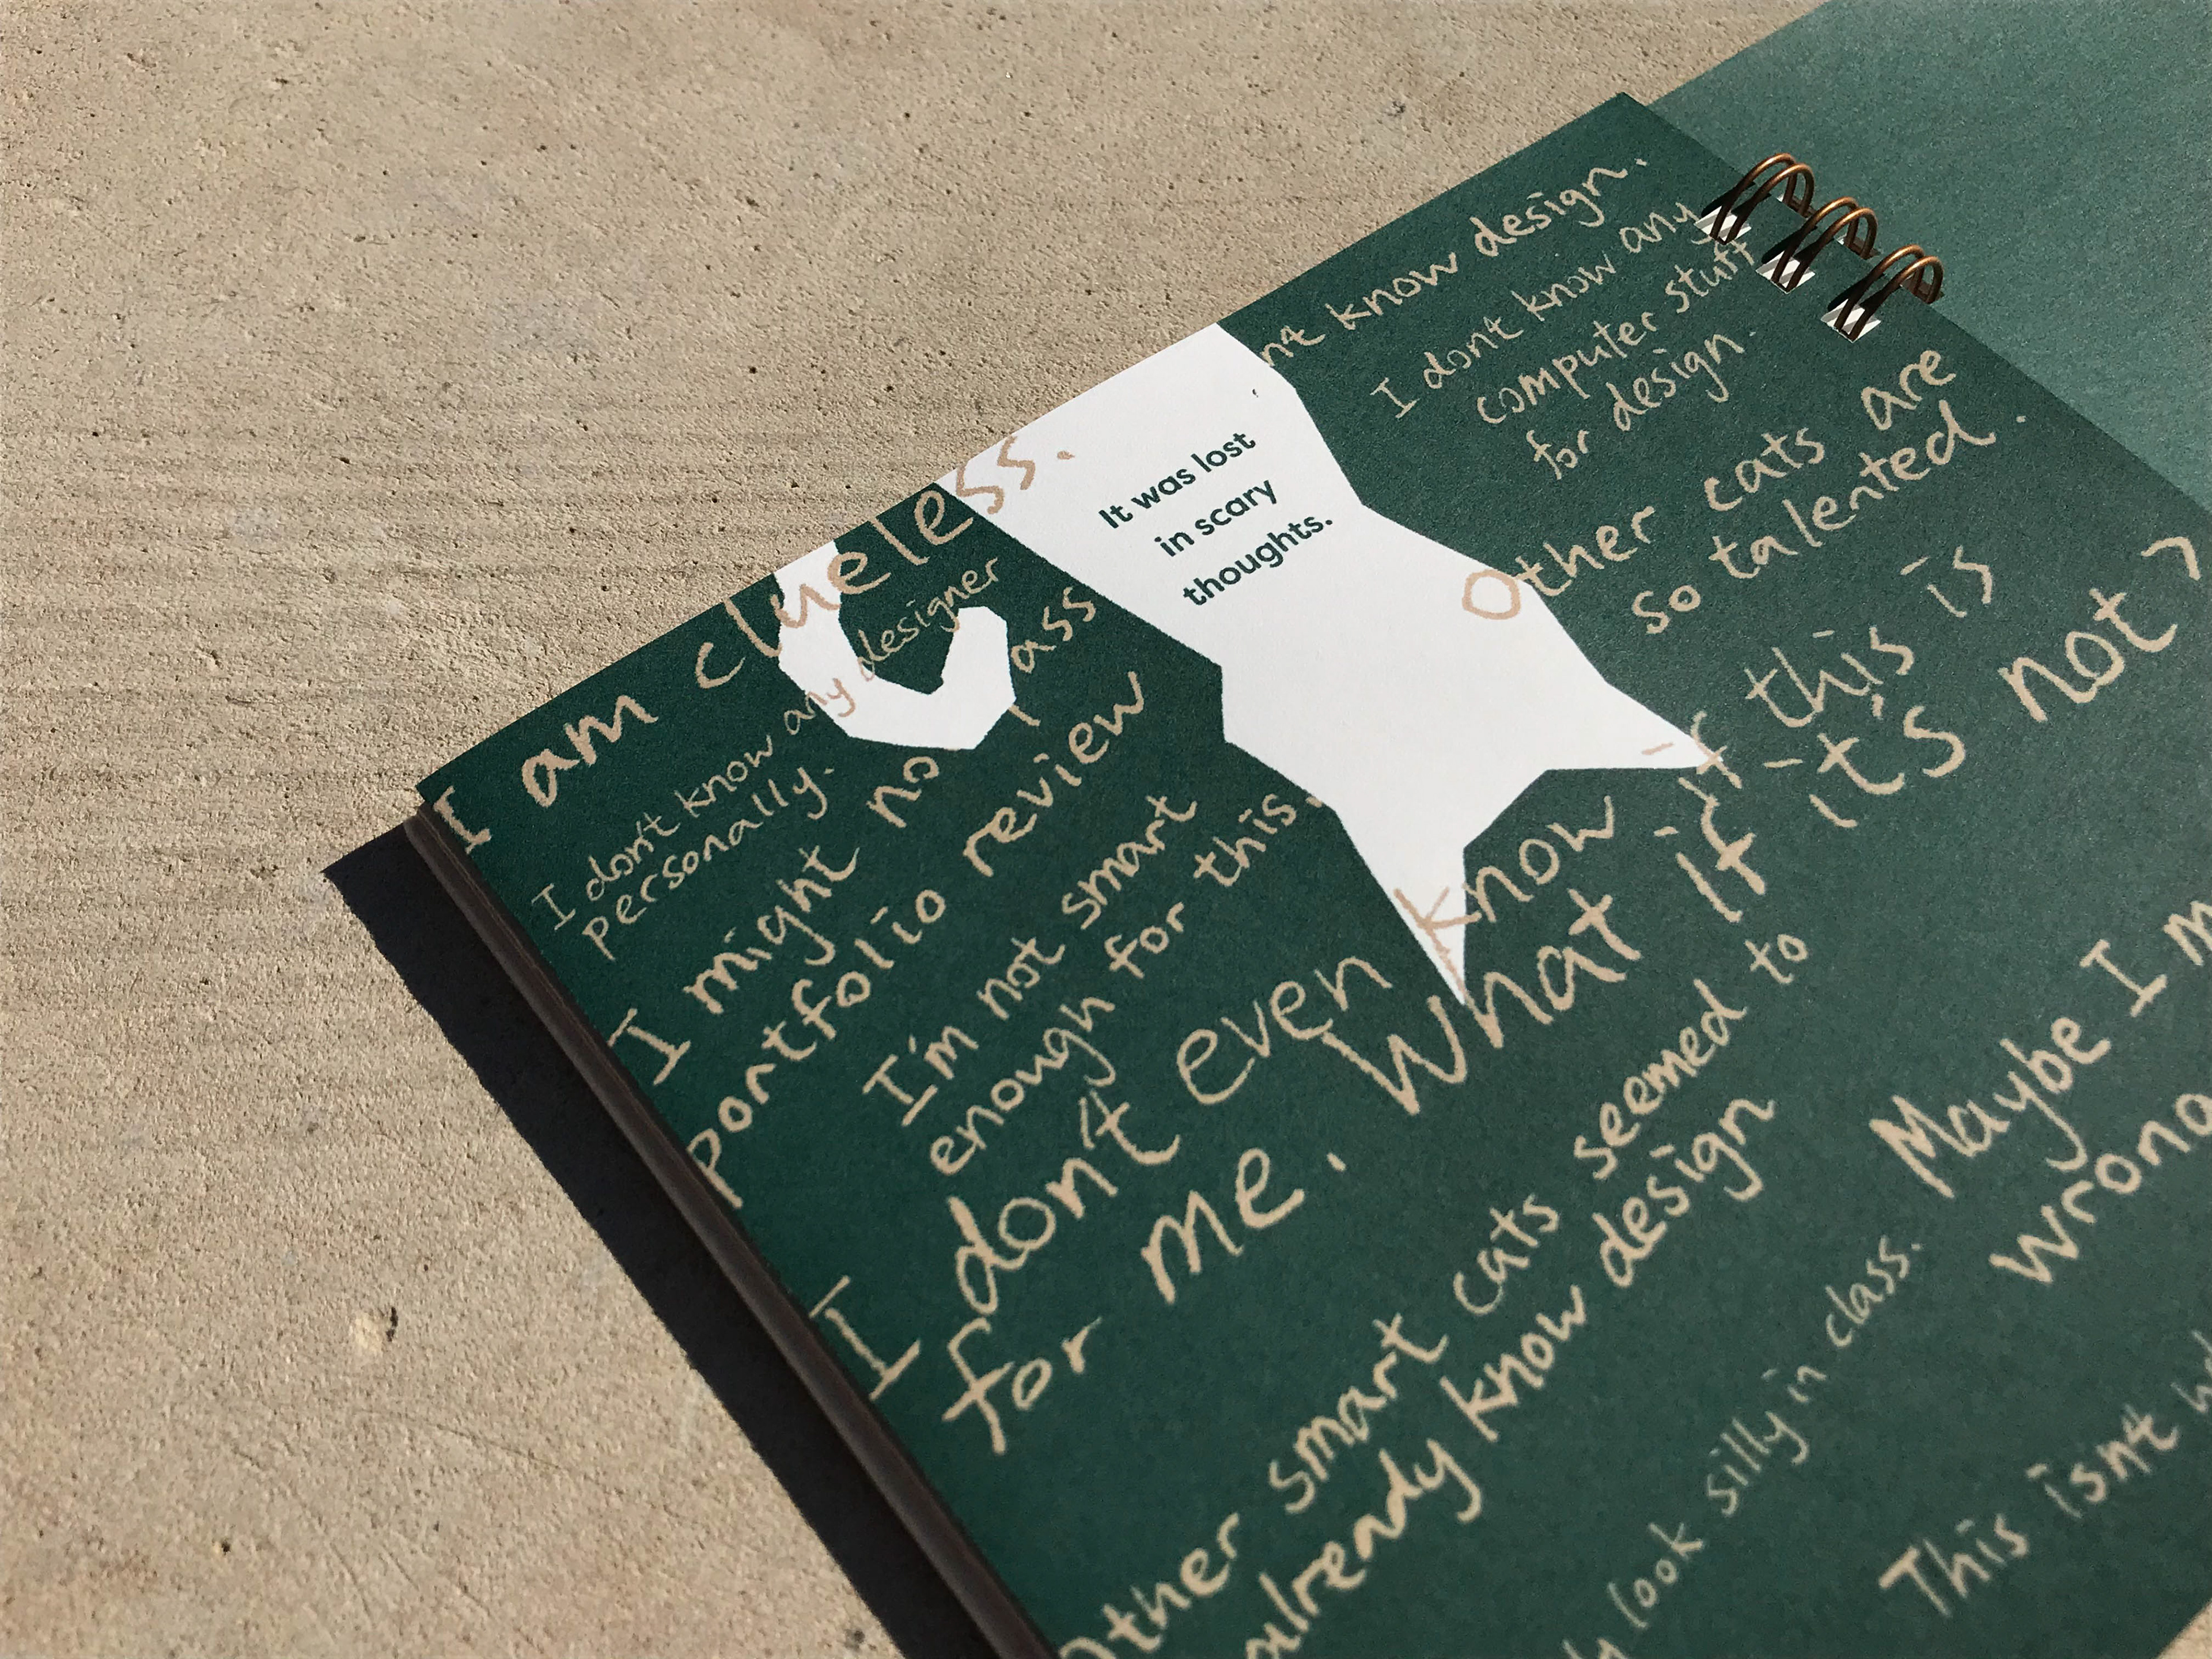 I am clueless.
I don't know any designer
personally.
I might not pass
portfolio review
I'm not smart
enough for this.
It was lost
in scary
thoughts.
know design.
I dont know any
computer stuff
for design.
Other cats are
so talented.
I don't even know if this is
for me. What if it's not?
Other smart cats seemed to
already know design
look silly in class.
Maybe I
wrong
This isn't